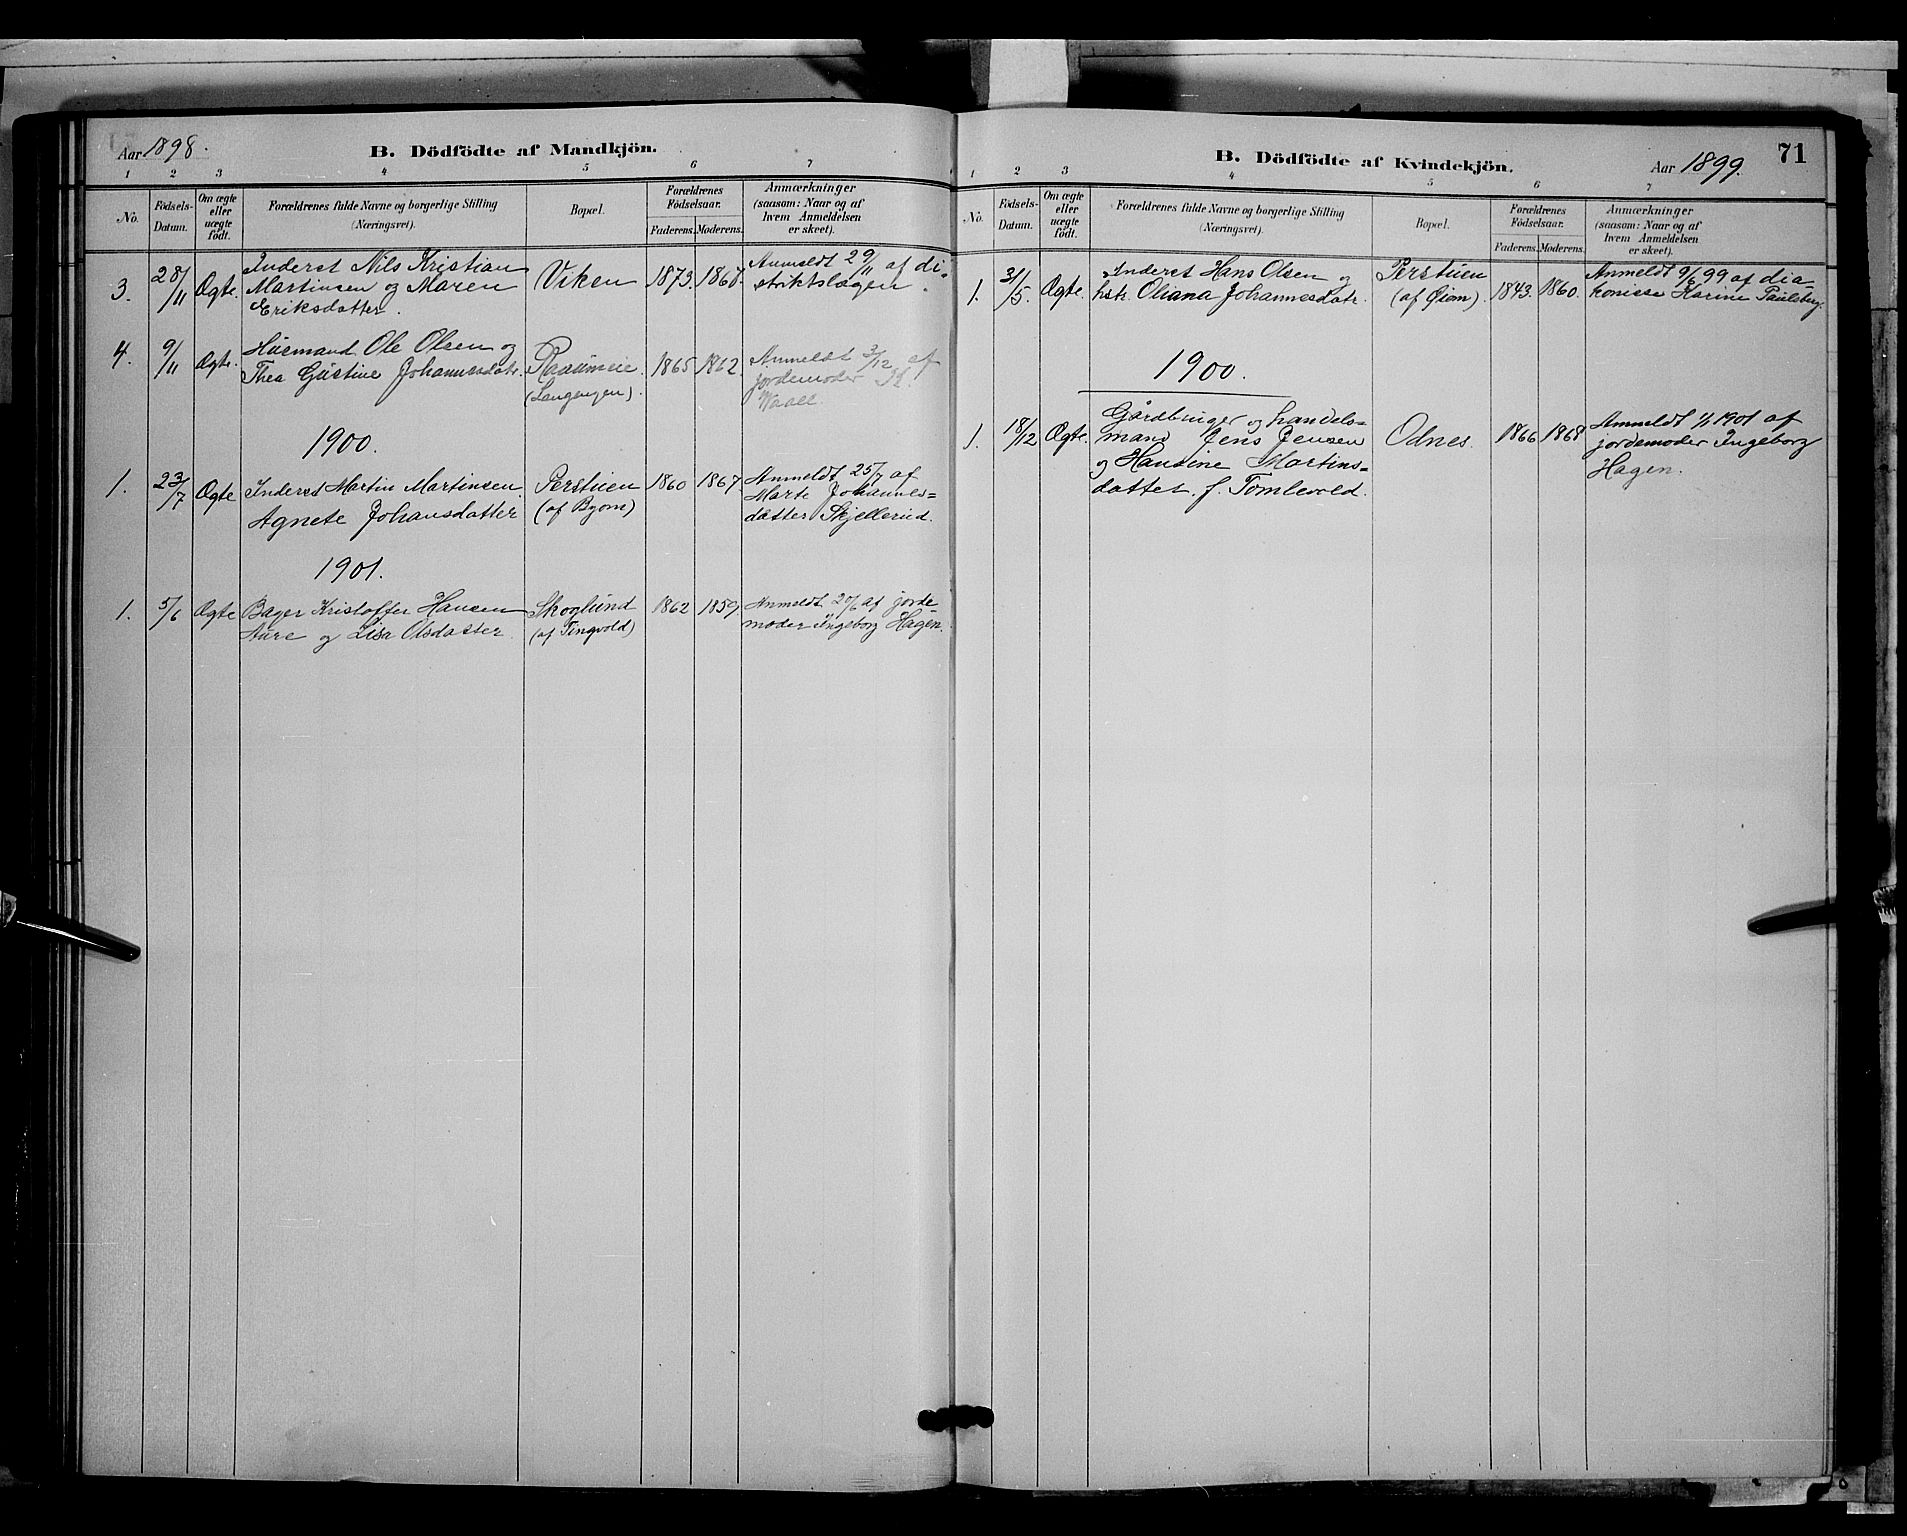 Aar 1898.
B. Dödfödte af Mandkjön.
1 2 3 4 5 6 7
No.
Födsels-
Datum.
Om ægte
eller
uægte
födt.
Forældrenes fulde Navne og borgerlige Stilling
(Næringsvei).
Bopæl.
Forældrenes
Födselsaar.
Faderens. Moderens.
Anmærkninger
(saasom: Naar og af
hvem Anmeldelsen
er skeet).
3. 28/11 Ægte. Inderst Nils Kristian
Martinsen og Maren
Eriksdatter.
Viken 1873. 1867.
Anmeldt 29/11 af di-
striktslægen.
4. 9/11 Ægte. Husmand Ole Olsen og
Thea Gustine Johannesdatr.
Raaumeie
(Langengen).
1865 1862.
Anmeldt 3/12 af
jordemoder K.
Waall.
1900.
1. 23/7 Ægte Inderst Martin Martinsen
Agnete Johansdatter
Perstuen
(af Byom)
1860 1867.
Anmeldt 25/7 af
Marte Johannes=
datter Skjellerud.
1901.
1. 5/6 Ægte Bager Kristoffer Hansen
Aure og Lisa Olsdatter.
Skoglund
(af Tingvold)
1862 1859.
Anmeldt 20/6 af jorde-
moder Ingeborg Hagen.
B. Dödfödte af Kvindekjön.
Aar 1899.
71
1 2 3 4 5 6 7
No.
Födsels-
Datum.
Om ægte
eller
uægte
födt.
Forældrenes fulde Navne og borgerlige Stilling
(Næringsvei).
Bopæl.
Forældrenes
Födselsaar.
Faderens. Moderens.
Anmærkninger
(saasom: Naar og af
hvem Anmeldelsen
er skeet).
1. 31/5. Ægte. Inderst Hans Olsen og
hstr. Oliana Johannesdatr.
Perstuen
(af Øiom).
1843. 1860.
Anmeldt 9/6 99 af dia-
konisse Karine Paulsberg.
1900.
1. 18/12 Ægte. Gårdbruger og handels=
mand Jens Jensen
og Hansine Martins=
datter f. Tomlevold.
Odnes. 1866 1868
Anmeldt 1/1 1901 af
jordemoder Ingeborg
Hagen.